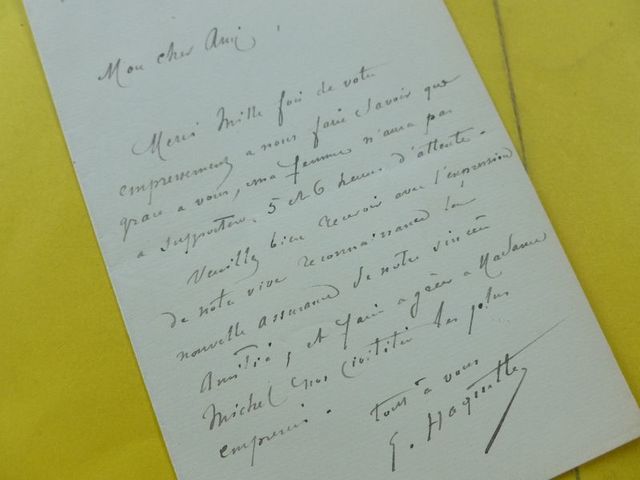 Mon cher Ami,
Merci Mille fois de votre
empressement a nous faire Savoir que
grace a vous, ma femme n'aura pas
a supporter 5 et 6 heures d'attente.
Veuillez bien recevoir avec l'expression
de notre vive reconnaissance la
nouvelle assurance de notre sincère
Amitié, et faire agréer a Madame
Michel nos civilités les plus
empressées.
tout à vous
G. Haquette